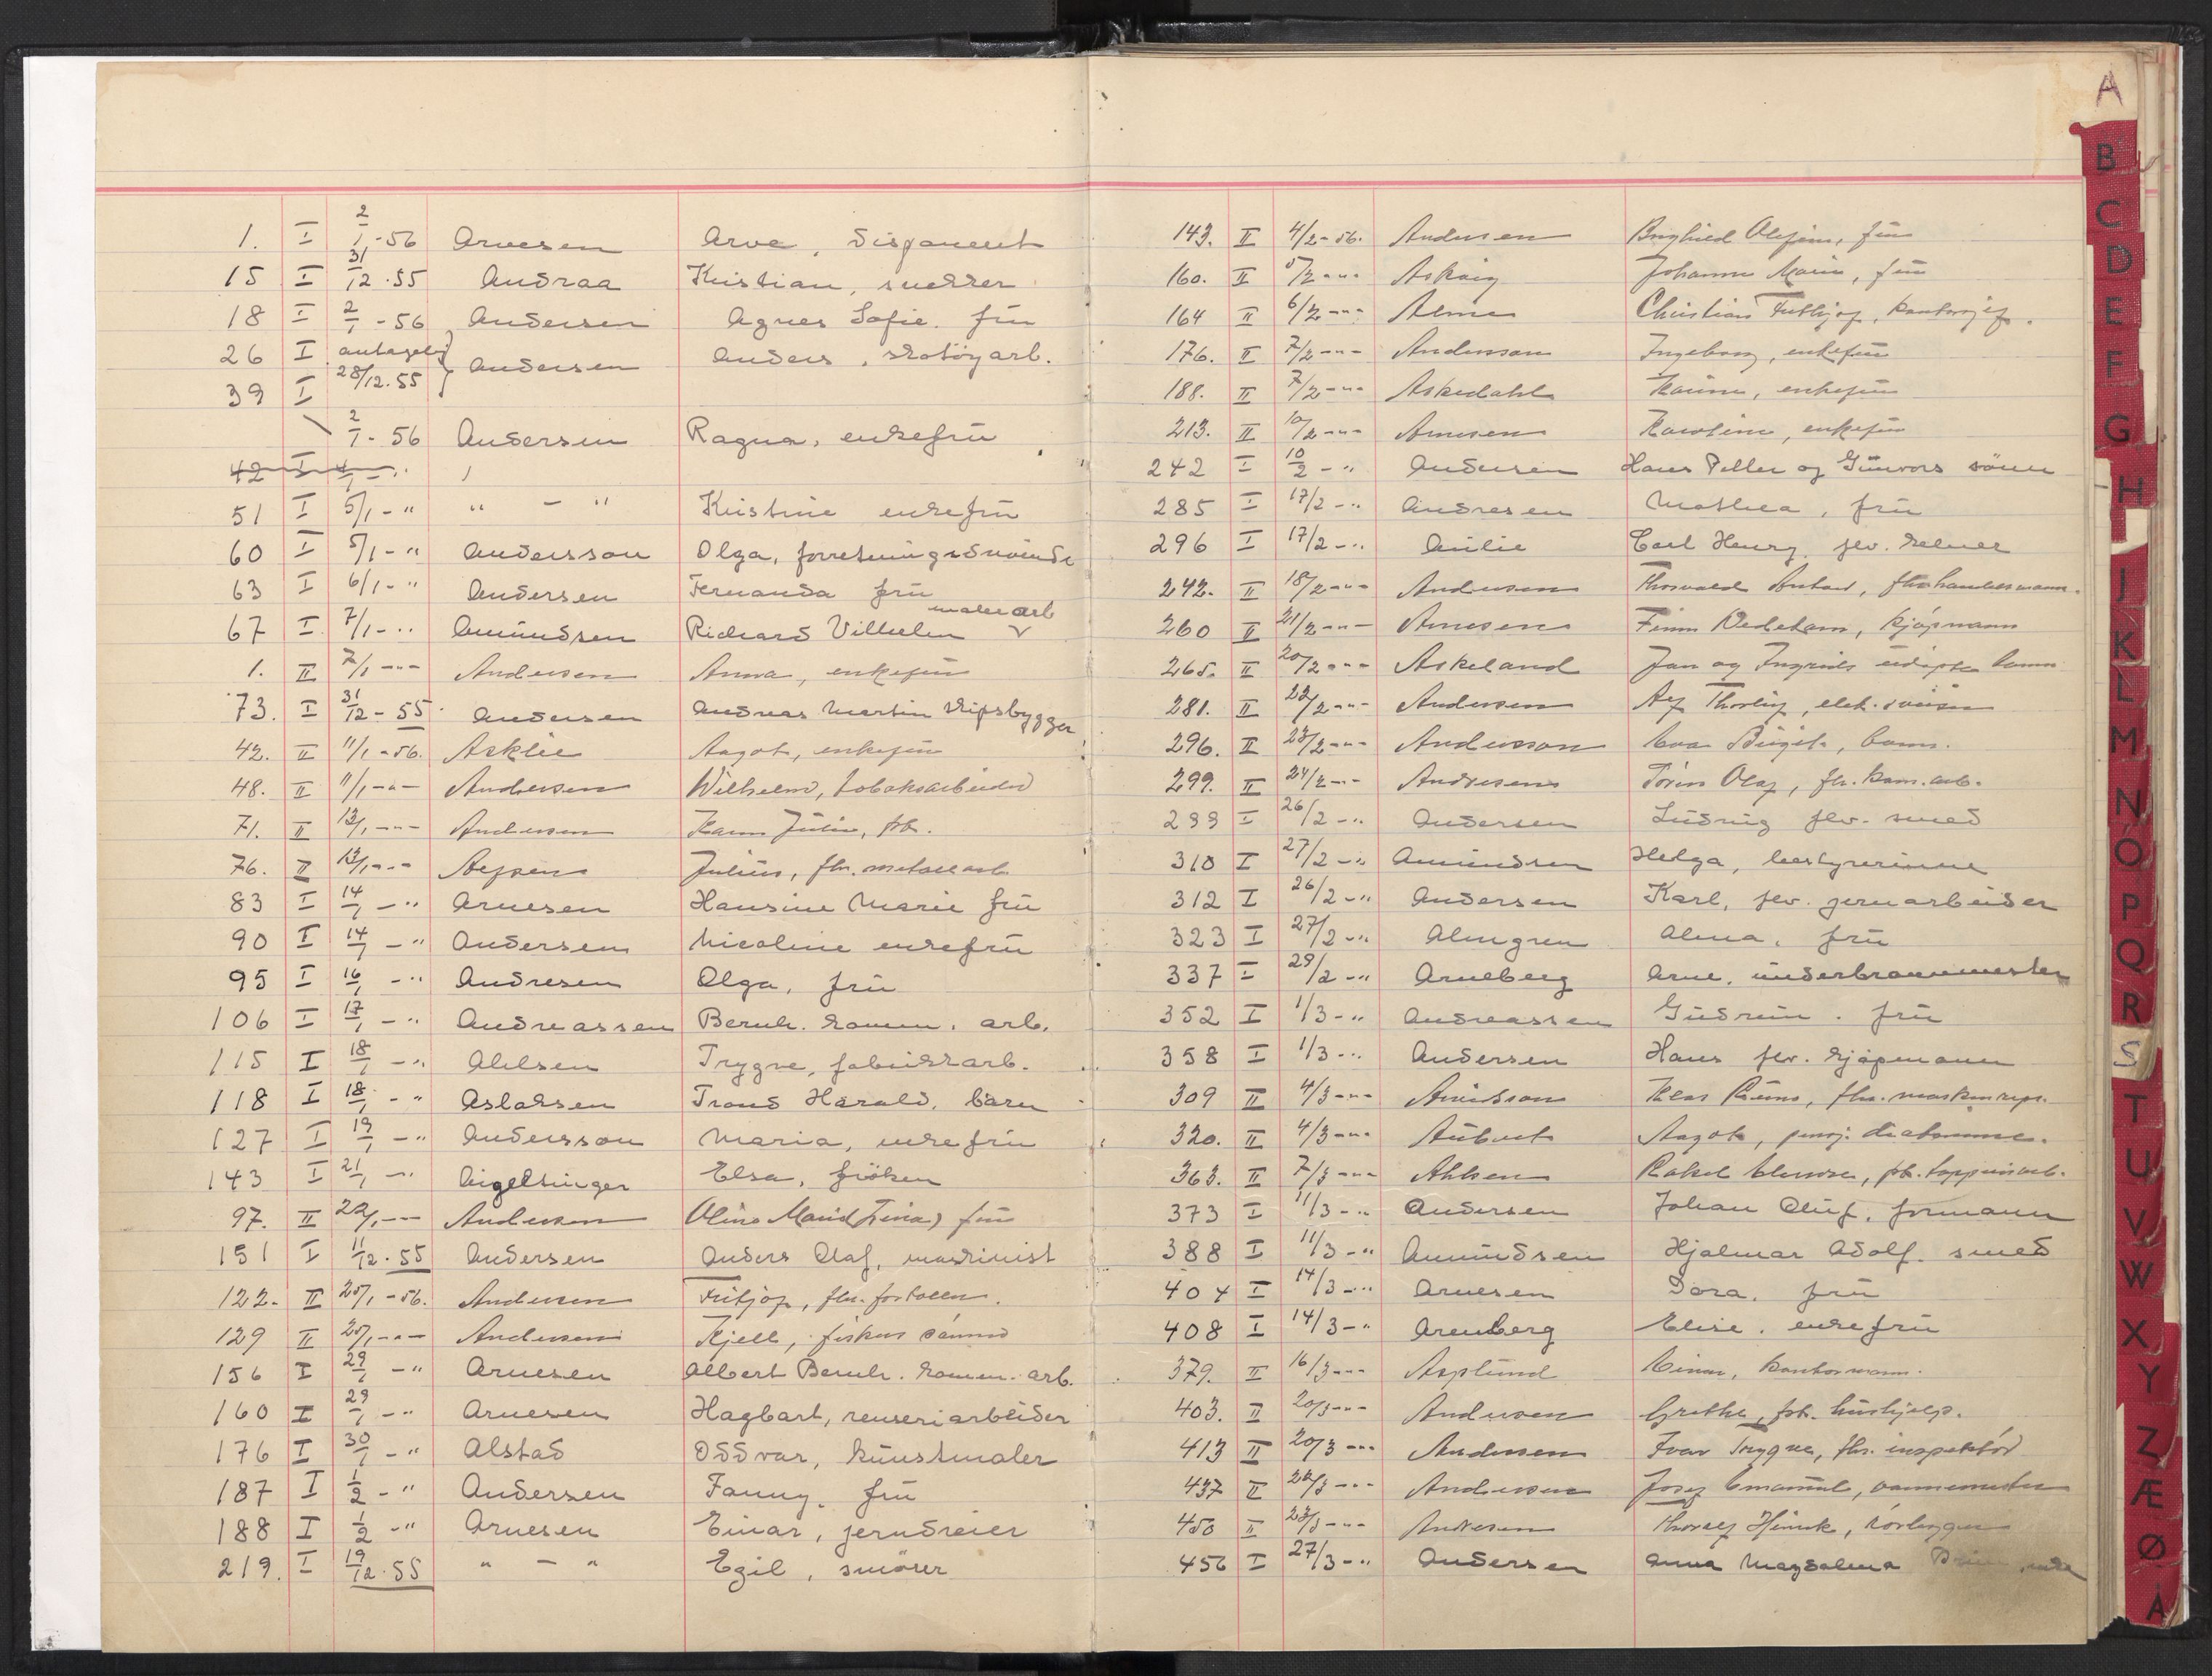 1. I 2/1-56 Arnesen Arve, disponent
15 I 31/12.55 Andraa Kristian, snekker
18 I 2/1-56 Andersen Agnes Sofie. frü
26 I antagelig Andersen Anders, skotöyarb.
39 I 28/12.55
2/1-56 Andersen Ragna, enkefrü
42 I 4/1
51 I 5/1-" " - " Kristine enkefrü
60 I 5/1-" Andersson Olga, forretningsdrivende
63 I 6/1-" Andersen Fernanda frü
67 I 7/1-" Amündsen Richard Vilhelm malerarb
1. II 7/1-"- Andersen Anna, enkefrü
73. I 31/12-55 Andersen Andreas Martin skipsbygger
42. II 11/1-56. Asklie Aagot, enkefrü
48. II 11/1-"- Andersen Wilhelm, tobaksarbeider
71. II 13/1-"- Andersen Karen Julie, frk.
76. II 13/1-"- Julius, fhv. metallarb.
83 I 14/1-" Arnesen Hansine Marie frü
90 I 14/1-" Andersen Nicoline enkefrü
95 I 16/1-" Andresen Olga, frü
106 I 17/1-" Andreassen Bernh. komm. arb.
115 I 18/1-" Ahlsen Trygve, fabrikkarb.
118 I 18/1-" Aslaksen Trond Harald, barn
127 I 19/1-" Andersson Maria, enkefrü
143 I 21/1-" Aigeltinger Elsa, fröken
97. II 22/1-- Andersen Oline Marie (Lina) frü
151 I 11/12.55 Andersen Anders Olaf, maskinist
122. II 25/1-56. Andersen Fritjof, fhv. fortoller.
129 II 25/1-"- Andersen Kjell, fiskers sönn
156 I 29/1-" Arnesen Albert Bernh. komm. arb.
160 I 29/1-" Arnesen Hagbart, renseriarbeider
176 I 30/1-" Alstad Oddvar, künstmaler
187 I 1/2-" Andersen Fanny. frü
188 I 1/2-" Arnesen Einar, jerndreier
219. I 19/12.55 " - " Egil, smörer
143. II 4/2-56. Andersen frü
160. II 5/2-"- Johanne Marie, frü
164 II 6/2-"- Alme Christian Frithjof, kontorsjef.
176. II 7/2-"- Andersson Ingeborg, enkefrü
188. II 7/2-"- Askedahl enkefrü
213. II 10/2-"- Arnesen Karoline, enkefrü
242 I 10/2-" Andersen Hans Petter og Günvors sönn
285 I 17/2-" Andresen Mathea, frü
296 I 17/2-" Carl Henry. fhv. kelner
242. II 18/2-"- Andersen Thorvald fhv. handelsmann.
260 II 21/2-"- Arnesen Finn Wedekam, kjöpmann
265. II 20/2-"- Askeland Jan og Ingrids üdöpte barn
281. II 22/2-"- Andersen Alf Thorleif, elek. sveiser
296. II 23/2-"- Andersson Eva Birgit, barn.
299. II 24/2-"- Andresen Olaf, fhv. kom. arb.
299 I 26/2-" Andersen Ludvig fhv. smed
310 I 27/2-" Amündsen Helga, bestyrerinne
312 I 26/2-" Andersen Karl, fhv. jernarbeider
323 I 27/2-" Almgren Alma, frü
337 I 29/2-" Arneberg Arne, ünderbrannmester
352 I 1/3-" Andreassen Güdrün. frü
358 I 1/3-" Andersen Hans fhv. kjöpmann
309 II 4/3-"- Arvidsson fhv. maskinrep.
320. II 4/3-"- Aübert Aagot, pensj. diakonisse.
363. II 7/3-"- Ahlsen Rakel
373 I 11/3-" Andersen Johan Olüf. formann
388 I 11/3-" Amündsen Hjalmar Adolf. smed
404 I 14/3-" Arnesen Dora. frü
408 I 14/3-" Arenberg Elise. enkefrü
379. II 16/3-"- Asplünd Einar, kontormann.
403. II 20/3-"- Andersen Grethe, frk. hüshjelp.
413 II 20/3-"- Andersen Ivar Trygve, fhv. inspektör
437 II 22/3-"- Andersen Josef Emanüel,
450 II 23/3-"- Andresen Thoralf Henrik, rörlegger
456 I 27/3-" Andersen Anna Magdalena
A
B
C
D
E
F
G
H
I
J
K
L
M
N
O
P
Q
R
S
T
U
V
W
X
Y
Z
Æ
Ø
Å